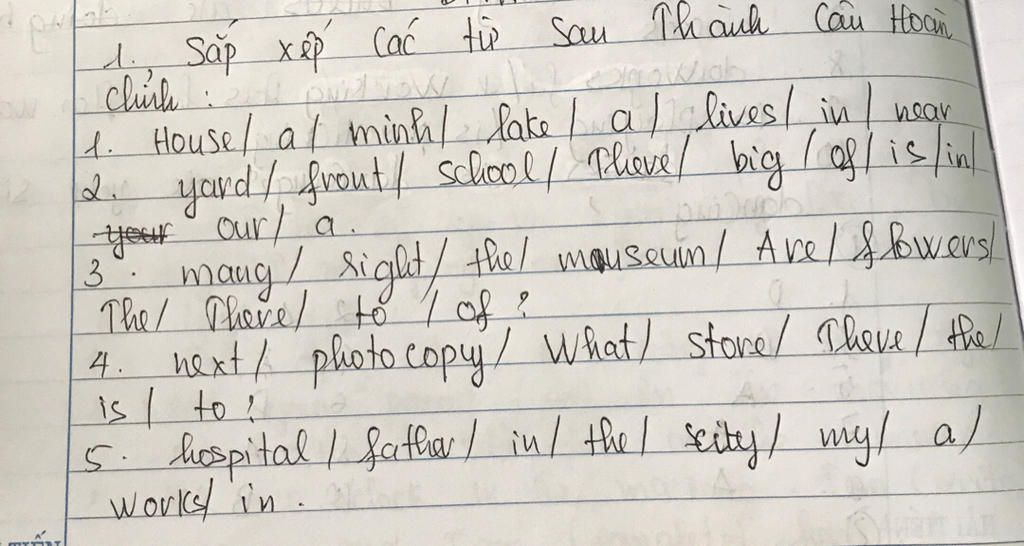 1. Sắp xếp các từ sau Thành Câu Hoàn
chỉnh :
1. House/ a/ minh/ lake / a/ lives/ in/ near
2. yard/ front/ school/ There/ big / of/ is/in/
your our/ a.
3. many/ right/ the/ mouseum/ Are/ flowers/
The/ There/ to / of ?
4. next/ photocopy/ What/ store/ There/ the/
is / to ?
5. hospital / father/ in/ the/ city/ my/ a/
works/ in.